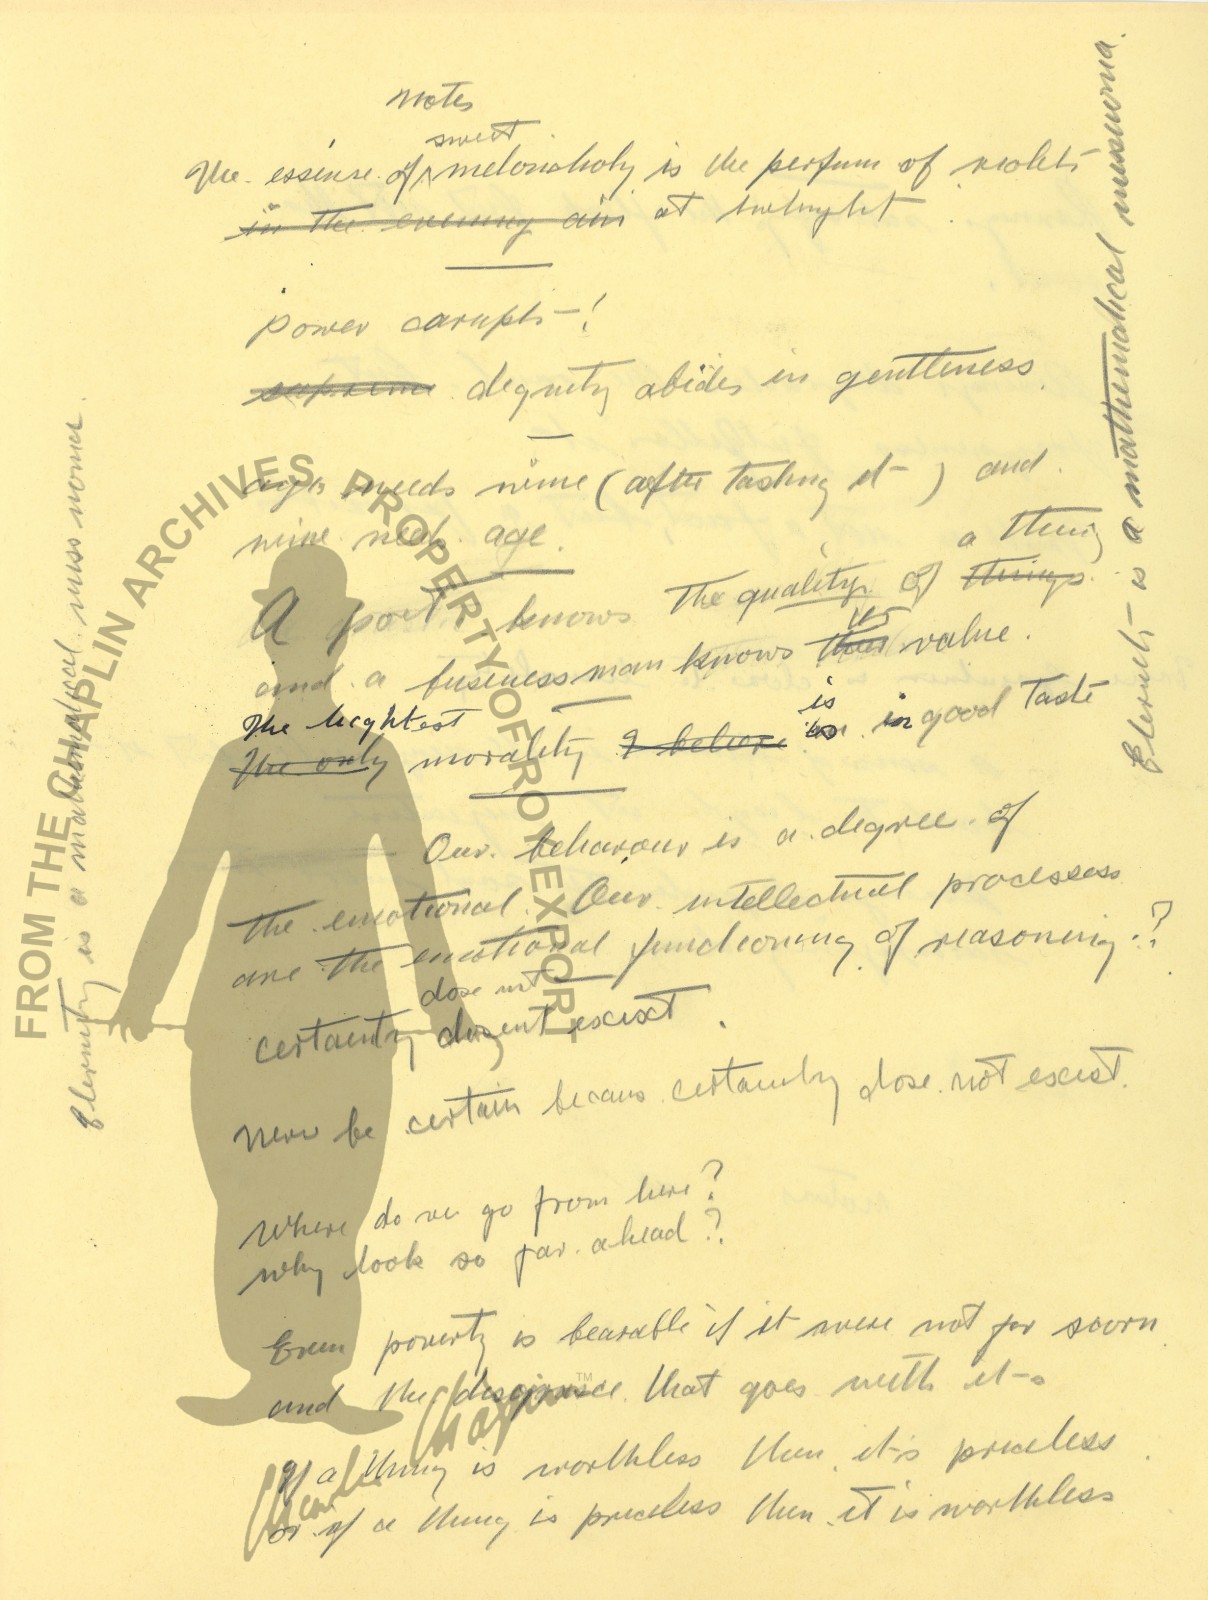 notes
sweet
The essense of meloncholy is the perfum of violets
in the evening air at twhight
power carupts -!
supreme degnity abides in gentleness
age needs wine (after tasting it-) and
wine needs age.
a thing
A poet knows The quality of things
its
and a buseness man knows their value.
The heightest is
The only morality I beleive is in good Taste
Our behavour is a degree of
the emotional. Our intellectual processess
are the emotional functioning of reasoning.?
dose not
certainty dosent excist.
Never be certain becaus certainty dose not excist.
Where do we go from here?
why look so far ahead?
Even poverty is bearable if it were not for scorn
and the disgrace that goes with it-.
If a thing is worthless then it is priceless
or if a thing is priceless then it is worthless
Eternity is a mathematical miss nomer.
Eternity is a mathematical missnoma.
FROM THE CHAPLIN ARCHIVES PROPERTY OF ROY EXPORT
Charlie Chaplin ™